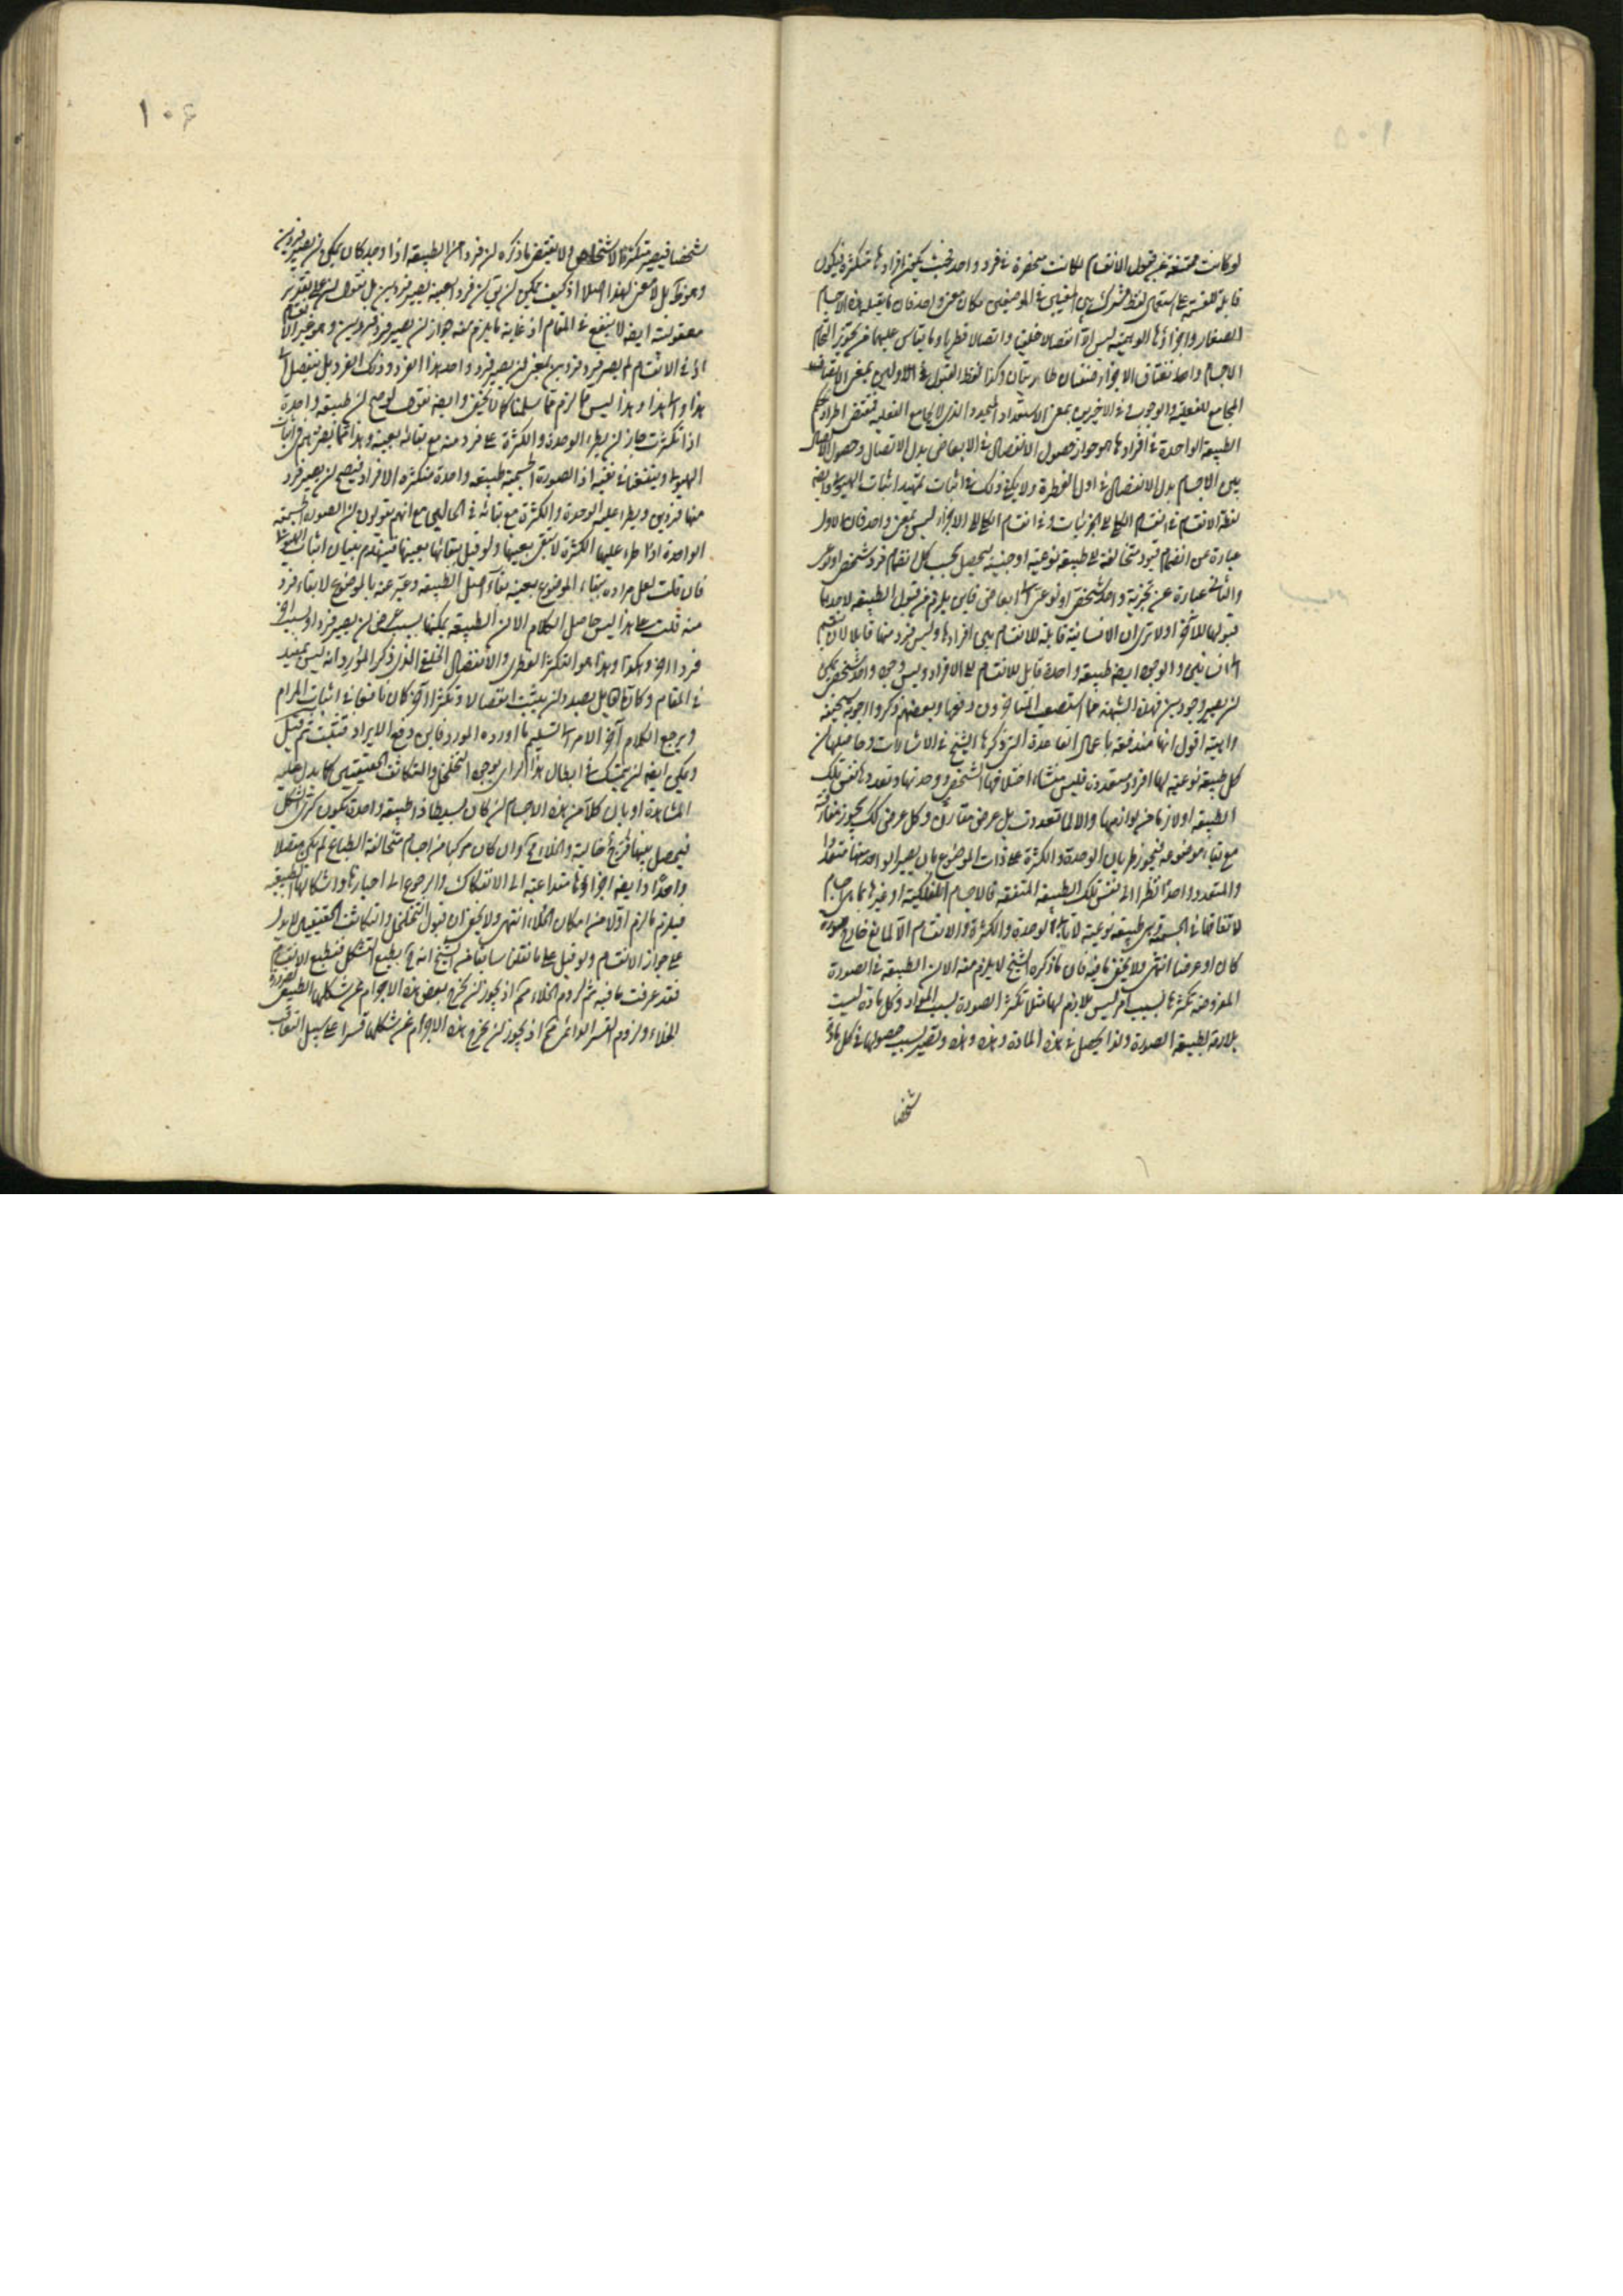 لو كانت ممتنعة عن قبول الانقسام لكانت منحصرة فى فرد واحد فحيث يكون افرادها متكثرة فيكون
قابلة للقسمة على استعمال لفظ مشترك بين المعنيين فى الموضعين مكان معنى واحد فان ما يقبله هذه الاجسام
الصغار واجزاؤها الوهمية ليس الا انفصالا خلقيا واتصالا فطريا وما يقاس عليهما من تجويز التحام
الاجسام واحد تفتاق الاجزاء فنتقان طاريتان وكذا لفظ القبول فى الاولين بمعنى الاتصاف
المجامع للفعلية والوجوب فى الاخيرين بمعنى الاستعداد البعيد والذى لا يجامع الفعلية فمقتضى اطراد حكم
الطبيعة الواحدة فى افرادها هو جواز حصول الانفصال فى الابعاض بدل الاتصال وحصول الاتصال
بين الاجسام بدل الانفصال فى اول الفطرة ولا يكفى ذلك فى اثبات تمهيد اثبات الهيولى وايضه
لفظ الانقسام فى انقسام الكلى الى الجزئيات وفى انقسام الكل الى الاجزاء ليس بمعنى واحد فان الاول
عبارة عن انضمام قيود متخالفة الى طبيعة نوعية او جنسية ليحصل بحسب كل انضمام فرد شخصى او نوعى
والثانى عبارة عن تجزية واحد شخصى او نوعى الى ابعاض فاين يلزم من قبول الطبيعة لاحدهما
قبولها للآخر اولا ترى ان الانسانية قابلة للانقسام بين افرادها وليس فرد منها قابلا لان ينقسم
الى انسانين والوجود ايضه طبيعة واحدة قابل للانقسام الى الافراد وليس وجود واحد شخصى يمكن
ان يصير وجودين فهذه الشبهة مما استصعب المتاخرون دفعها وبعضهم ذكروا اجوبة سخيفة
واهية اقول انها مندفعة باعمال القاعدة التى ذكرها الشيخ فى الاشارات وحاصلها ان
كل طبيعة نوعية لها افراد متعددة فليس منشاء اختلافها الشخصى ووحدتها وتعددها نفس تلك
الطبيعة او لازما من لوازمها والا لما تعددت بل عرض مفارق وكل عرض كك يجوز مفارقته
مع بقاء موضوعه فيجوز طريان الوحدة والكثرة على ذات الموضوع بان يصير الواحد منها متعددا
والمتعدد واحدا نظرا الى نفس تلك الطبيعة المتفقة فالاجسام الفلكية او غيرها بما هى اجسام
لاتفاقها فى الجسمية وهى طبيعة نوعية لا تابى الوحدة والكثرة والانقسام الا لمانع خارج صورة
كان او عرضا انتهى ولا يخفى ما فيه فان ما ذكره الشيخ لا يلزم منه الا ان الطبيعة فى الصورة
المفروضة تكثرها بسبب امر ليس بلازم لها مثلا تكثر الصورة بسبب المواد وكل مادة ليست
بلازمة لطبيعة الصورة ولذا يحصل فى هذه المادة وهذه وهذه وتصير بسبب حصولها فى كل مادة
شخصا
١٠٦
شخصا فيصير متكثرة الاشخاص ولا يقتضى ما ذكره ان فردا من الطبيعة اذا وجد كان يمكن ان يصير فردين
وهو ظ بل لا معنى لهذا اصلا اذ كيف يمكن ان يق ان فردا بعينه يصير فردين بل نقول ان على تقدير
معقوليته ايضه لا ينفع فى المقام اذ غاية ما يلزم منه جواز ان يصير فرد فردين وهو غير الانقسام
اذ فى الانقسام لم يصير فرد فردين بمعنى ان يصير فرد واحد هذا الفرد وذلك الفرد بل ينفصل الى
هذا والى هذا وهذا ليس مما لزم مما سلمنا كما لا يخفى وايضه نقول لو صح ان طبيعة واحدة
اذا تكثرت جاز ان يطرء الوحدة والكثرة على فرد منه مع بقائه بعينه وهذا مما يضرهم فى اثبات
الهيولى وينفعنا فى نفيه اذ الصورة الجسمية طبيعة واحدة متكثرة الافراد فيصح ان يصير فرد
منها فردين ويطرء عليه الوحدة والكثرة مع بقائه فى الحالين مع انهم يقولون ان الصورة الجسمية
الواحدة اذا طرء عليها الكثرة لا تبقى بعينها ولو قيل ببقائها بعينها فينهدم بنيان اثبات الهيولى
فان قلت لعل مراده ببقاء الموضوع بعينه بقاء اصل الطبيعة وعبر عنه بالموضوع لا بقاء فرد
منه قلت على هذا ليس حاصل الكلام الا ان الطبيعة يمكنها بسبب عرض ان يصير فردا وبسبب آخر
فردا آخر وهكذا وهذا هو التكثر الفطرى والانفصال الخلقى الذى ذكر المورد انه ليس بمفيد
فى المقام وكان القائل بصدد ان يثبت انفصالا وتكثرا آخر كان نافعا فى اثبات المرام
ويرجع الكلام آخر الامر الى التسليم ما اورده المورد فاين دفع الايراد فتثبت ثم قيل
ويمكن ايضه ان يتمسك فى ابطال هذا الراى بوجود التخلخل والتكاثف الحقيقيين كما يدل عليه
المشاهدة او بان كلا من هذه الاجسام ان كان بسيطا ذا طبيعة واحدة يكون كرى الشكل
فيحصل بينها فرج خالية والخلاء مح وان كان مركبا من اجسام متخالفة الطبايع لم يكن متصلا
واحدا وايضه اجزاؤها متداعية الى الانفكاك والرجوع الى احيازها واشكالها الطبيعية
فيلزم ما لزم اولا من امكان الخلاء انتهى ولا يخفى ان قبول التخلخل والتكاثف الحقيقيين لا يدل
على جواز الانقسام ولو قيل على ما نقلنا سابقا من الشيخ انه ح يطيع التشكل فيطيع الانقسام
فقد عرفت ما فيه ثم لزوم الخلاء مم اذ يجوز ان يخرج بعض هذه الاجرام عن شكلها الطبيعى لضرورة
الخلاء ولزوم القسر الدائمى مم اذ يجوز ان يخرج هذه الاجرام عن شكلها قسرا على سبيل التعاقب